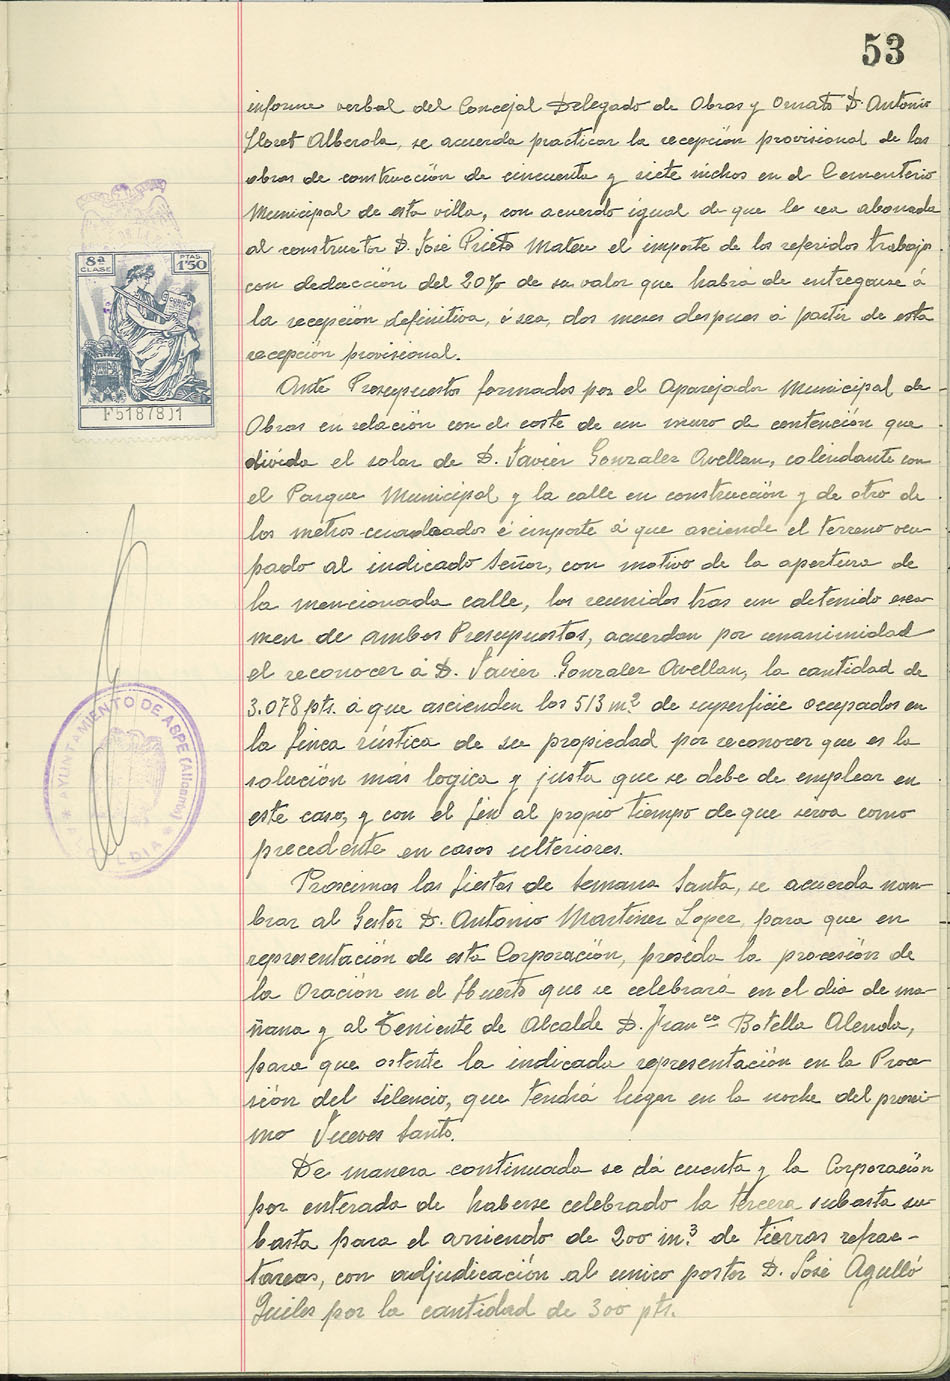 53
informe verbal del Concejal Delegado de Obras y Ornato D. Antonio
Lloret Alberola, se acuerda practicar la recepción provisional de las
obras de construcción de cincuenta y siete nichos en el Cementerio
Municipal de esta villa, con acuerdo igual de que le sea abonada
al constructor D. José Prieto Mateu el importe de los referidos trabajos
con deducción del 20% de su valor que habrá de entregarse á
la recepción definitiva, ó sea, dos meses despues á partir de esta
recepción provisional.
Ante Presupuestos formados por el Aparejador Municipal de
Obras en relación con el coste de un muro de contención que
divida el solar de D. Javier Gonzalez Avellan, colindante con
el Parque Municipal y la calle en construcción y de otro de
los metros cuadrados é importe á que asciende el terreno ocu-
pado al indicado Señor, con motivo de la apertura de
la mencionada calle, los reunidos tras un detenido exa-
men de ambos Presupuestos, acuerdan por unanimidad
el reconocer á D. Javier Gonzalez Avellan, la cantidad de
3.078 pts. á que ascienden los 513 m² de superficie ocupados en
la finca rústica de su propiedad por reconocer que es la
solución más logica y justa que se debe de emplear en
este caso, y con el fin al propio tiempo de que sirva como
precedente en casos ulteriores.
Proximas las fiestas de Semana Santa, se acuerda nom-
brar al Gestor D. Antonio Martinez Lopez, para que en
representación de esta Corporación, preseda la procesión de
la Oración en el Huerto que se celebrará en el dia de ma-
ñana y al Teniente de Alcalde D. Franco Botella Alenda,
para que ostente la indicada representación en la Proce-
sión del Silencio, que tendrá lugar en la noche del proxi-
mo Jueves Santo.
De manera continuada se dá cuenta y la Corporación
por enterada de haberse celebrado la tercera subasta su-
basta para el arriendo de 200 m.³ de tierras refrac-
tareas, con adjudicación al unico postor D. José Agulló
Guilos por la cantidad de 300 pts.
8ª CLASE
PTAS. 1'50
F5187811
AYUNTAMIENTO DE ASPE (Alicante)
ALCALDIA